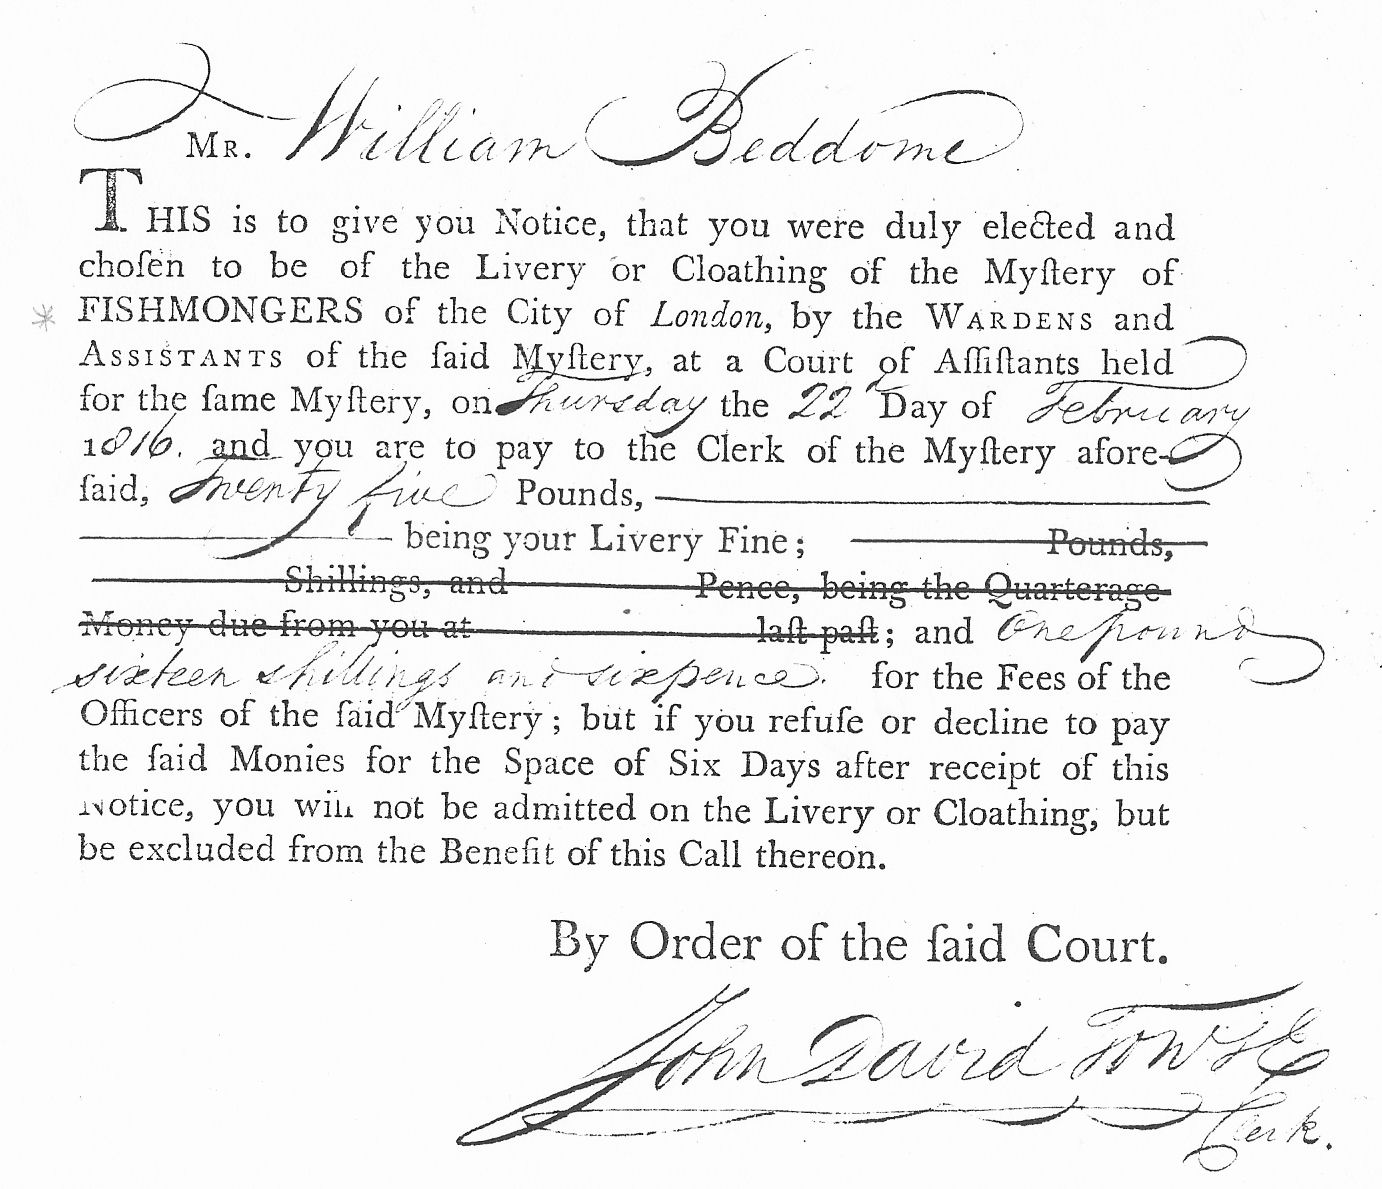 MR. William Beddome
THIS is to give you Notice, that you were duly elected and
choſen to be of the Livery or Cloathing of the Myſtery of
* FISHMONGERS of the City of London, by the WARDENS and
ASSISTANTS of the ſaid Myſtery, at a Court of Aſſiſtants held
for the ſame Myſtery, on Thursday the 22 Day of February
1816. and you are to pay to the Clerk of the Myſtery afore-
ſaid, Twenty five Pounds,
being your Livery Fine; Pounds,
Shillings, and Pence, being the Quarterage
Money due from you at laſt paſt; and One pound
sixteen shillings and sixpence. for the Fees of the
Officers of the ſaid Myſtery; but if you refuſe or decline to pay
the ſaid Monies for the Space of Six Days after receipt of this
Notice, you will not be admitted on the Livery or Cloathing, but
be excluded from the Benefit of this Call thereon.
By Order of the ſaid Court.
John David Towse
Clerk.